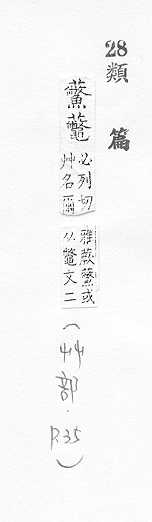 28
類篇
虌䕪
必列切
艸名爾
雅蕨虌或
从鼈文二
(艸部.P.35)